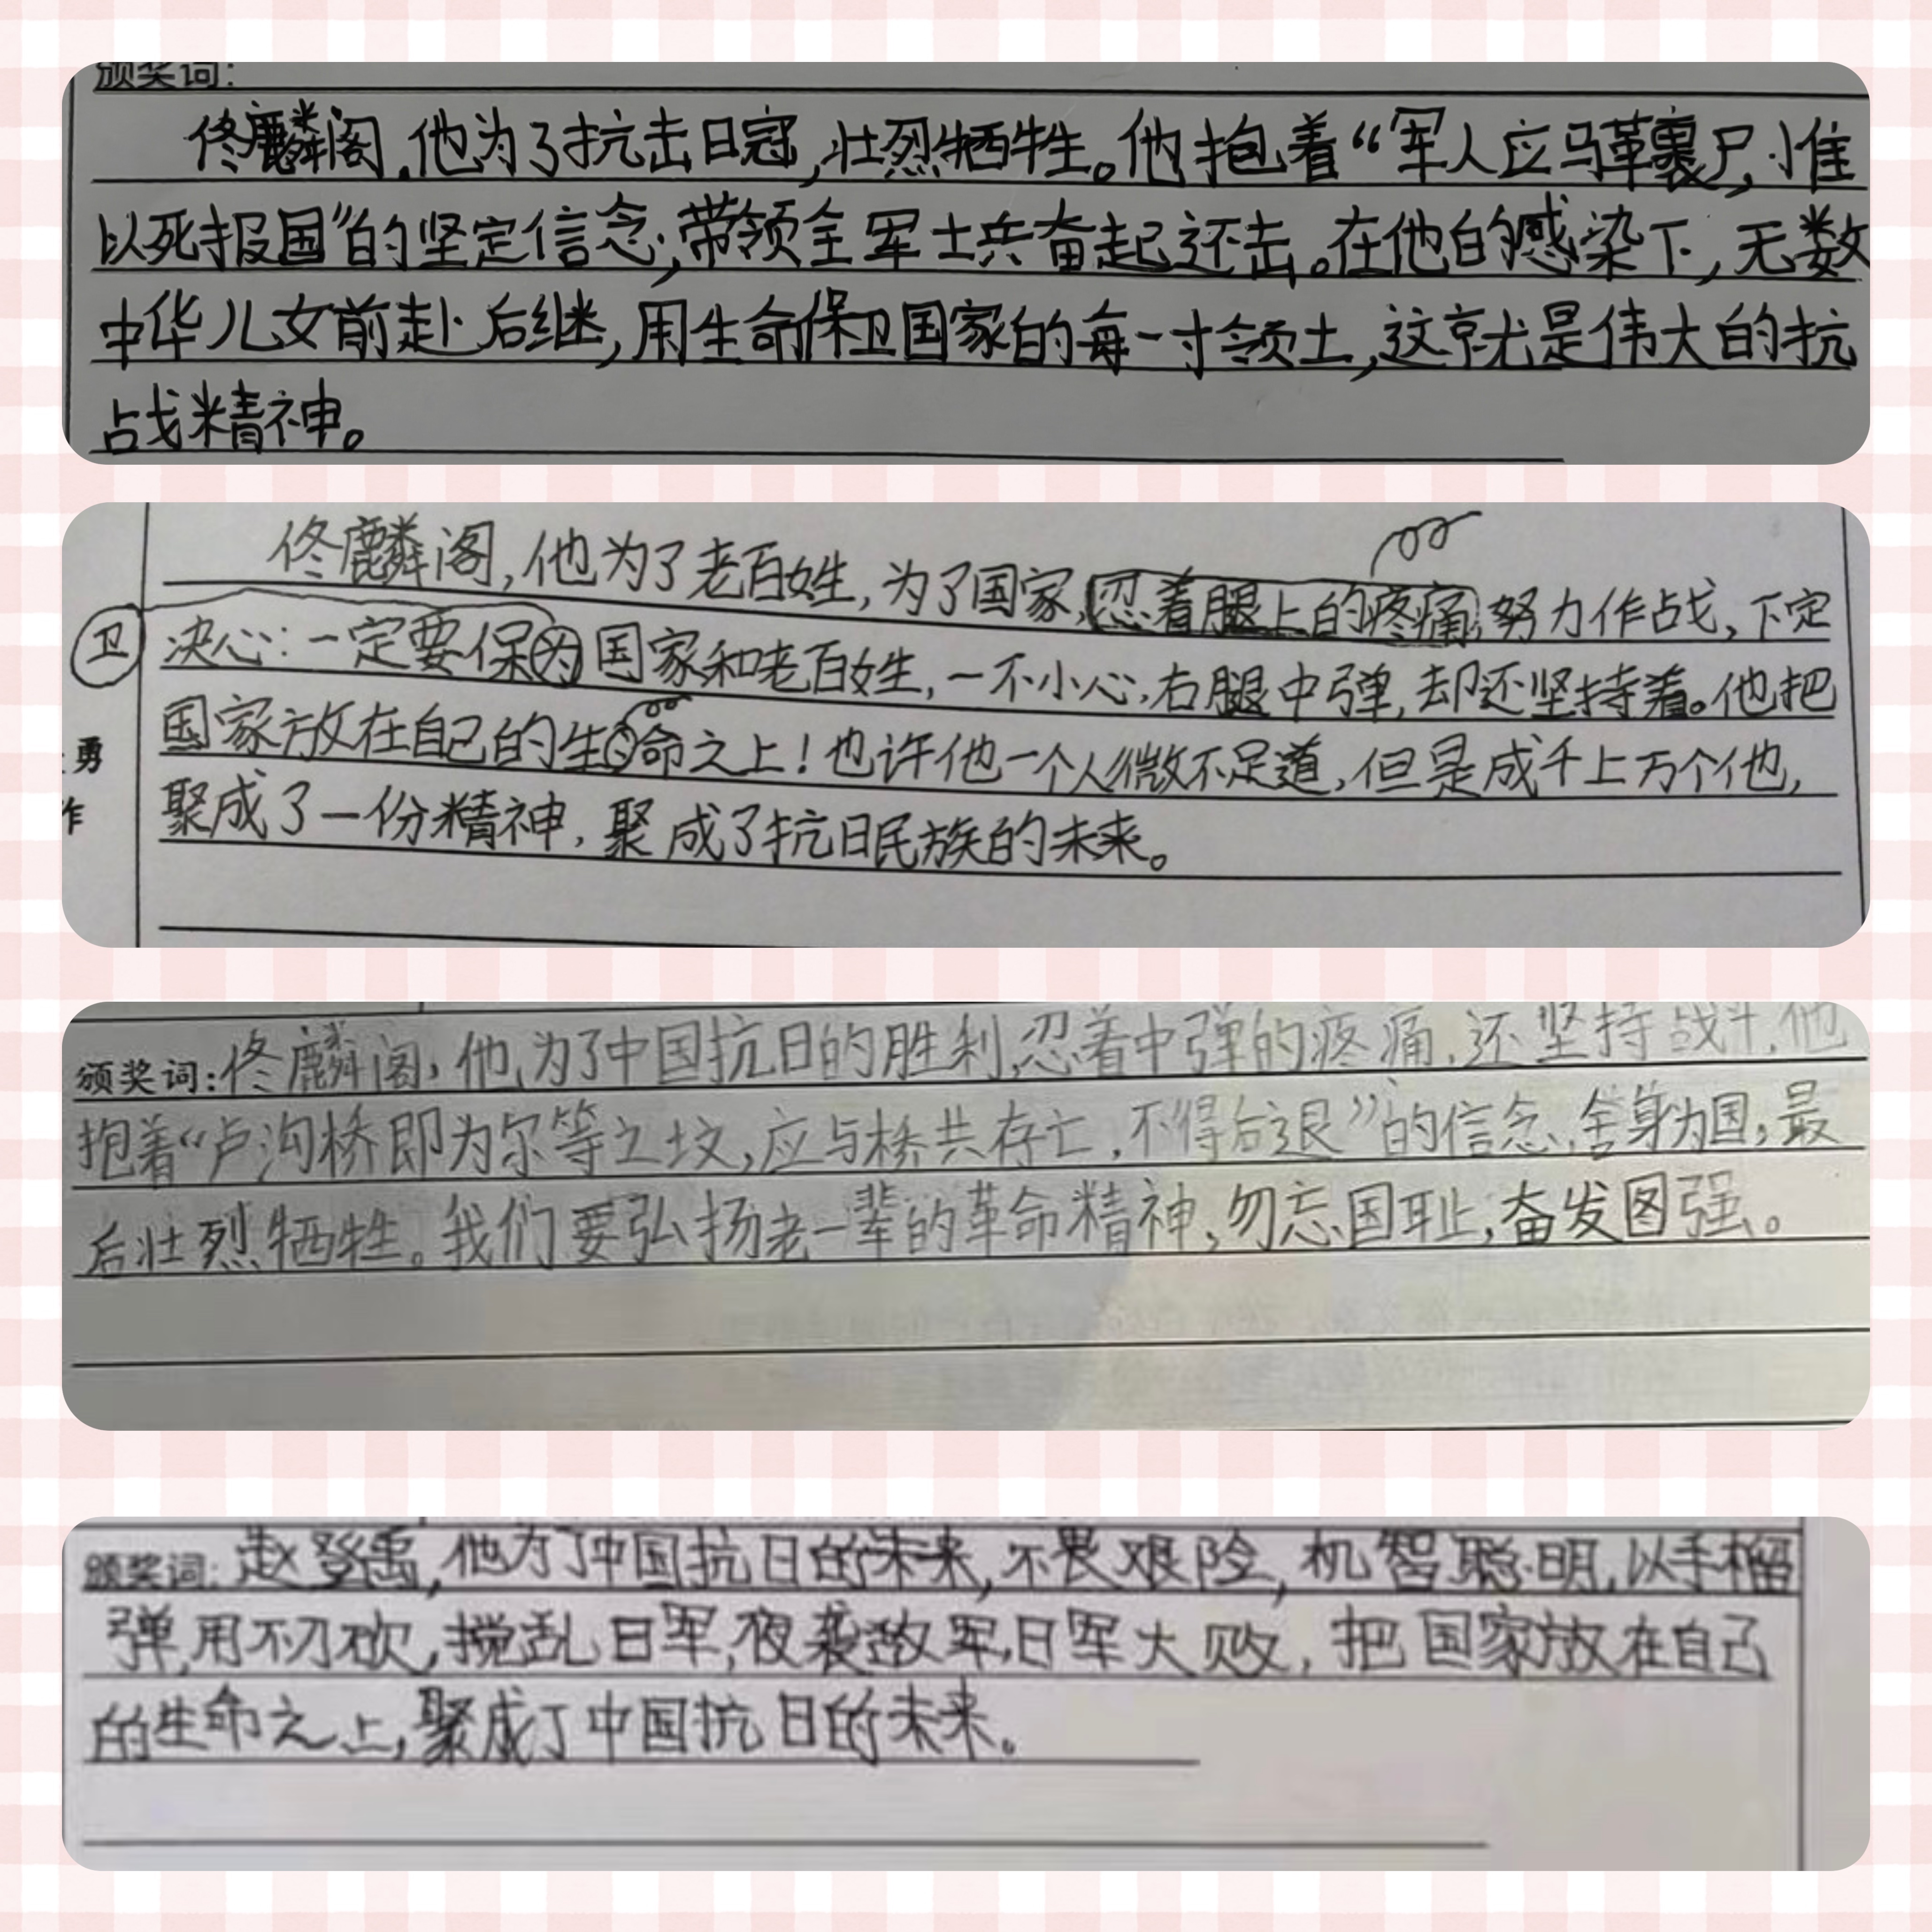 颁奖词：
佟麟阁，他为了抗击日寇，壮烈牺牲。他抱着“军人应马革裹尸，惟
以死报国”的坚定信念，带领全军士兵奋起还击。在他的感染下，无数
中华儿女前赴后继，用生命保卫国家的每一寸领土，这就是伟大的抗
战精神。
佟麟阁，他为了老百姓，为了国家，忍着腿上的疼痛，努力作战，下定
卫
决心：一定要保为国家和老百姓，一不小心，右腿中弹，却还坚持着。他把
国家放在自己的生命之上！也许他一个人微不足道，但是成千上万个他，
勇
作
聚成了一份精神，聚成了抗日民族的未来。
颁奖词：佟麟阁，他为了中国抗日的胜利，忍着中弹的疼痛，还坚持战斗，他
抱着“卢沟桥即为尔等之坟，应与桥共存亡，不得后退”的信念，舍身为国，最
后壮烈牺牲。我们要弘扬老一辈的革命精神，勿忘国耻，奋发图强。
颁奖词：赵登禹，他为了中国抗日的未来，不畏艰险，机智聪明，以手榴
弹，用刀砍，搅乱日军，夜袭敌军，日军大败，把国家放在自己
的生命之上，聚成了中国抗日的未来。